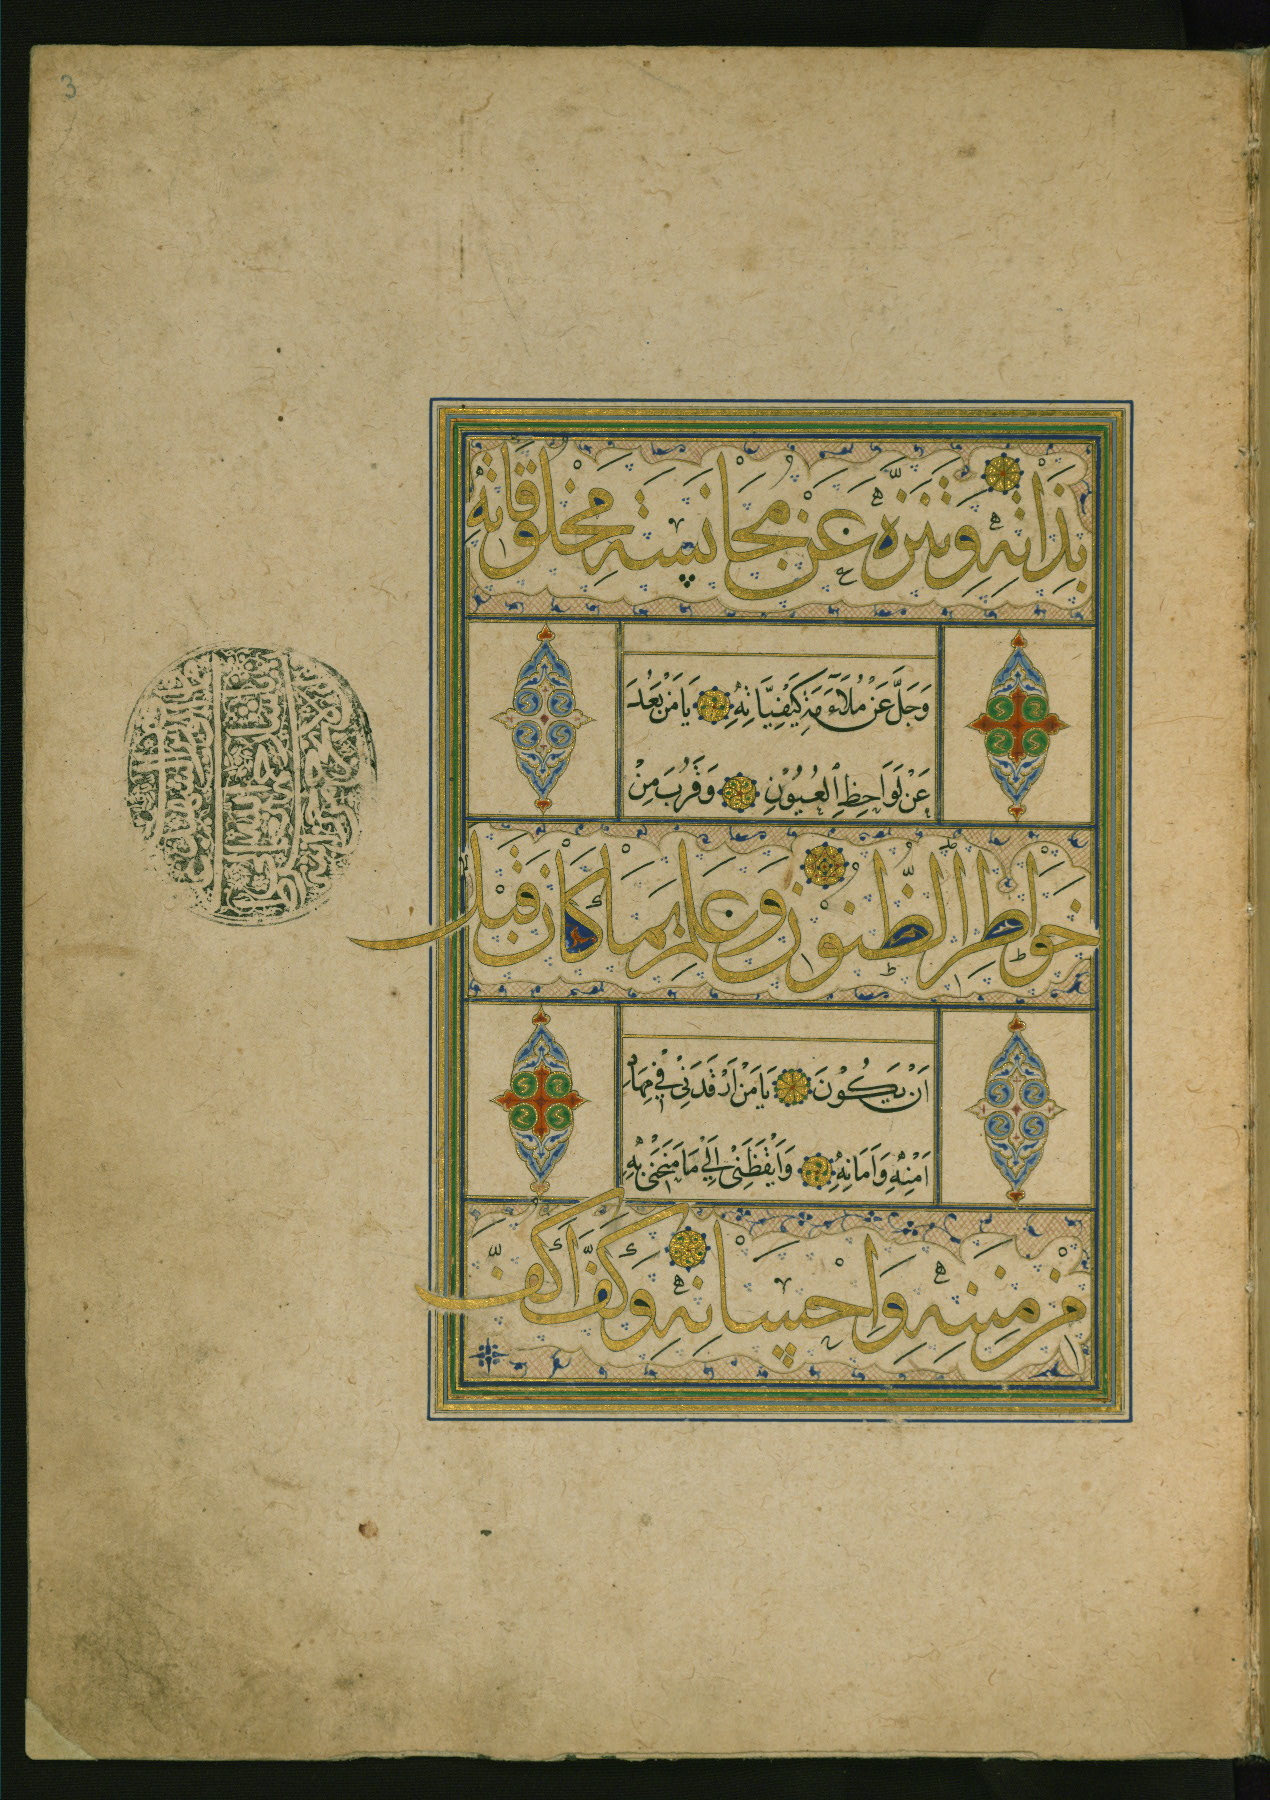 3
بِذَاتِهِ وَتَنَزَّهَ عَنْ مُجَانَسَةِ مَخْلُوقَاتِهِ
وَجَلَّ عَنْ مُلَآءَمَةِ كَيْفِيَّاتِهِ يَا مَنْ بَعُدَ
عَنْ لَوَاحِظِ الْعُيُوْنِ وَقَرُبَ مِنْ
خَوَاطِرِ الظُّنُونِ وَعَلِمَ بِمَا كَانَ قَبْلَ
اَنْ يَكُوْنَ يَا مَنْ اَرْقَدَنِيْ فِيْ مِهَادِ
اَمْنِهِ وَاَمَانِهِ وَاَيْقَظَنِيْ اِلٰي مَا مَنَحَنِيْ بِهِ
مِنْ مِنَنِهِ وَاِحْسَانِهِ وَكَفَّ اَكُفَّ